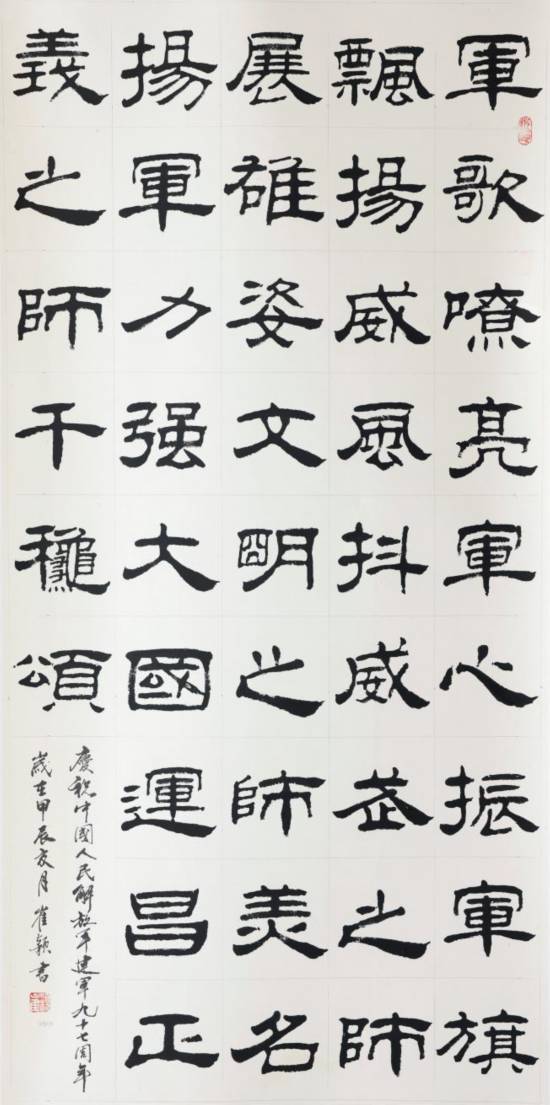 軍歌嘹亮軍心振軍旗
飄揚威風抖威武之師
展雄姿文明之師美名
揚軍力强大國運昌正
義之師千龝頌
慶祝中國人民解放军建軍九十七周年
歲在甲辰友月崔穎書